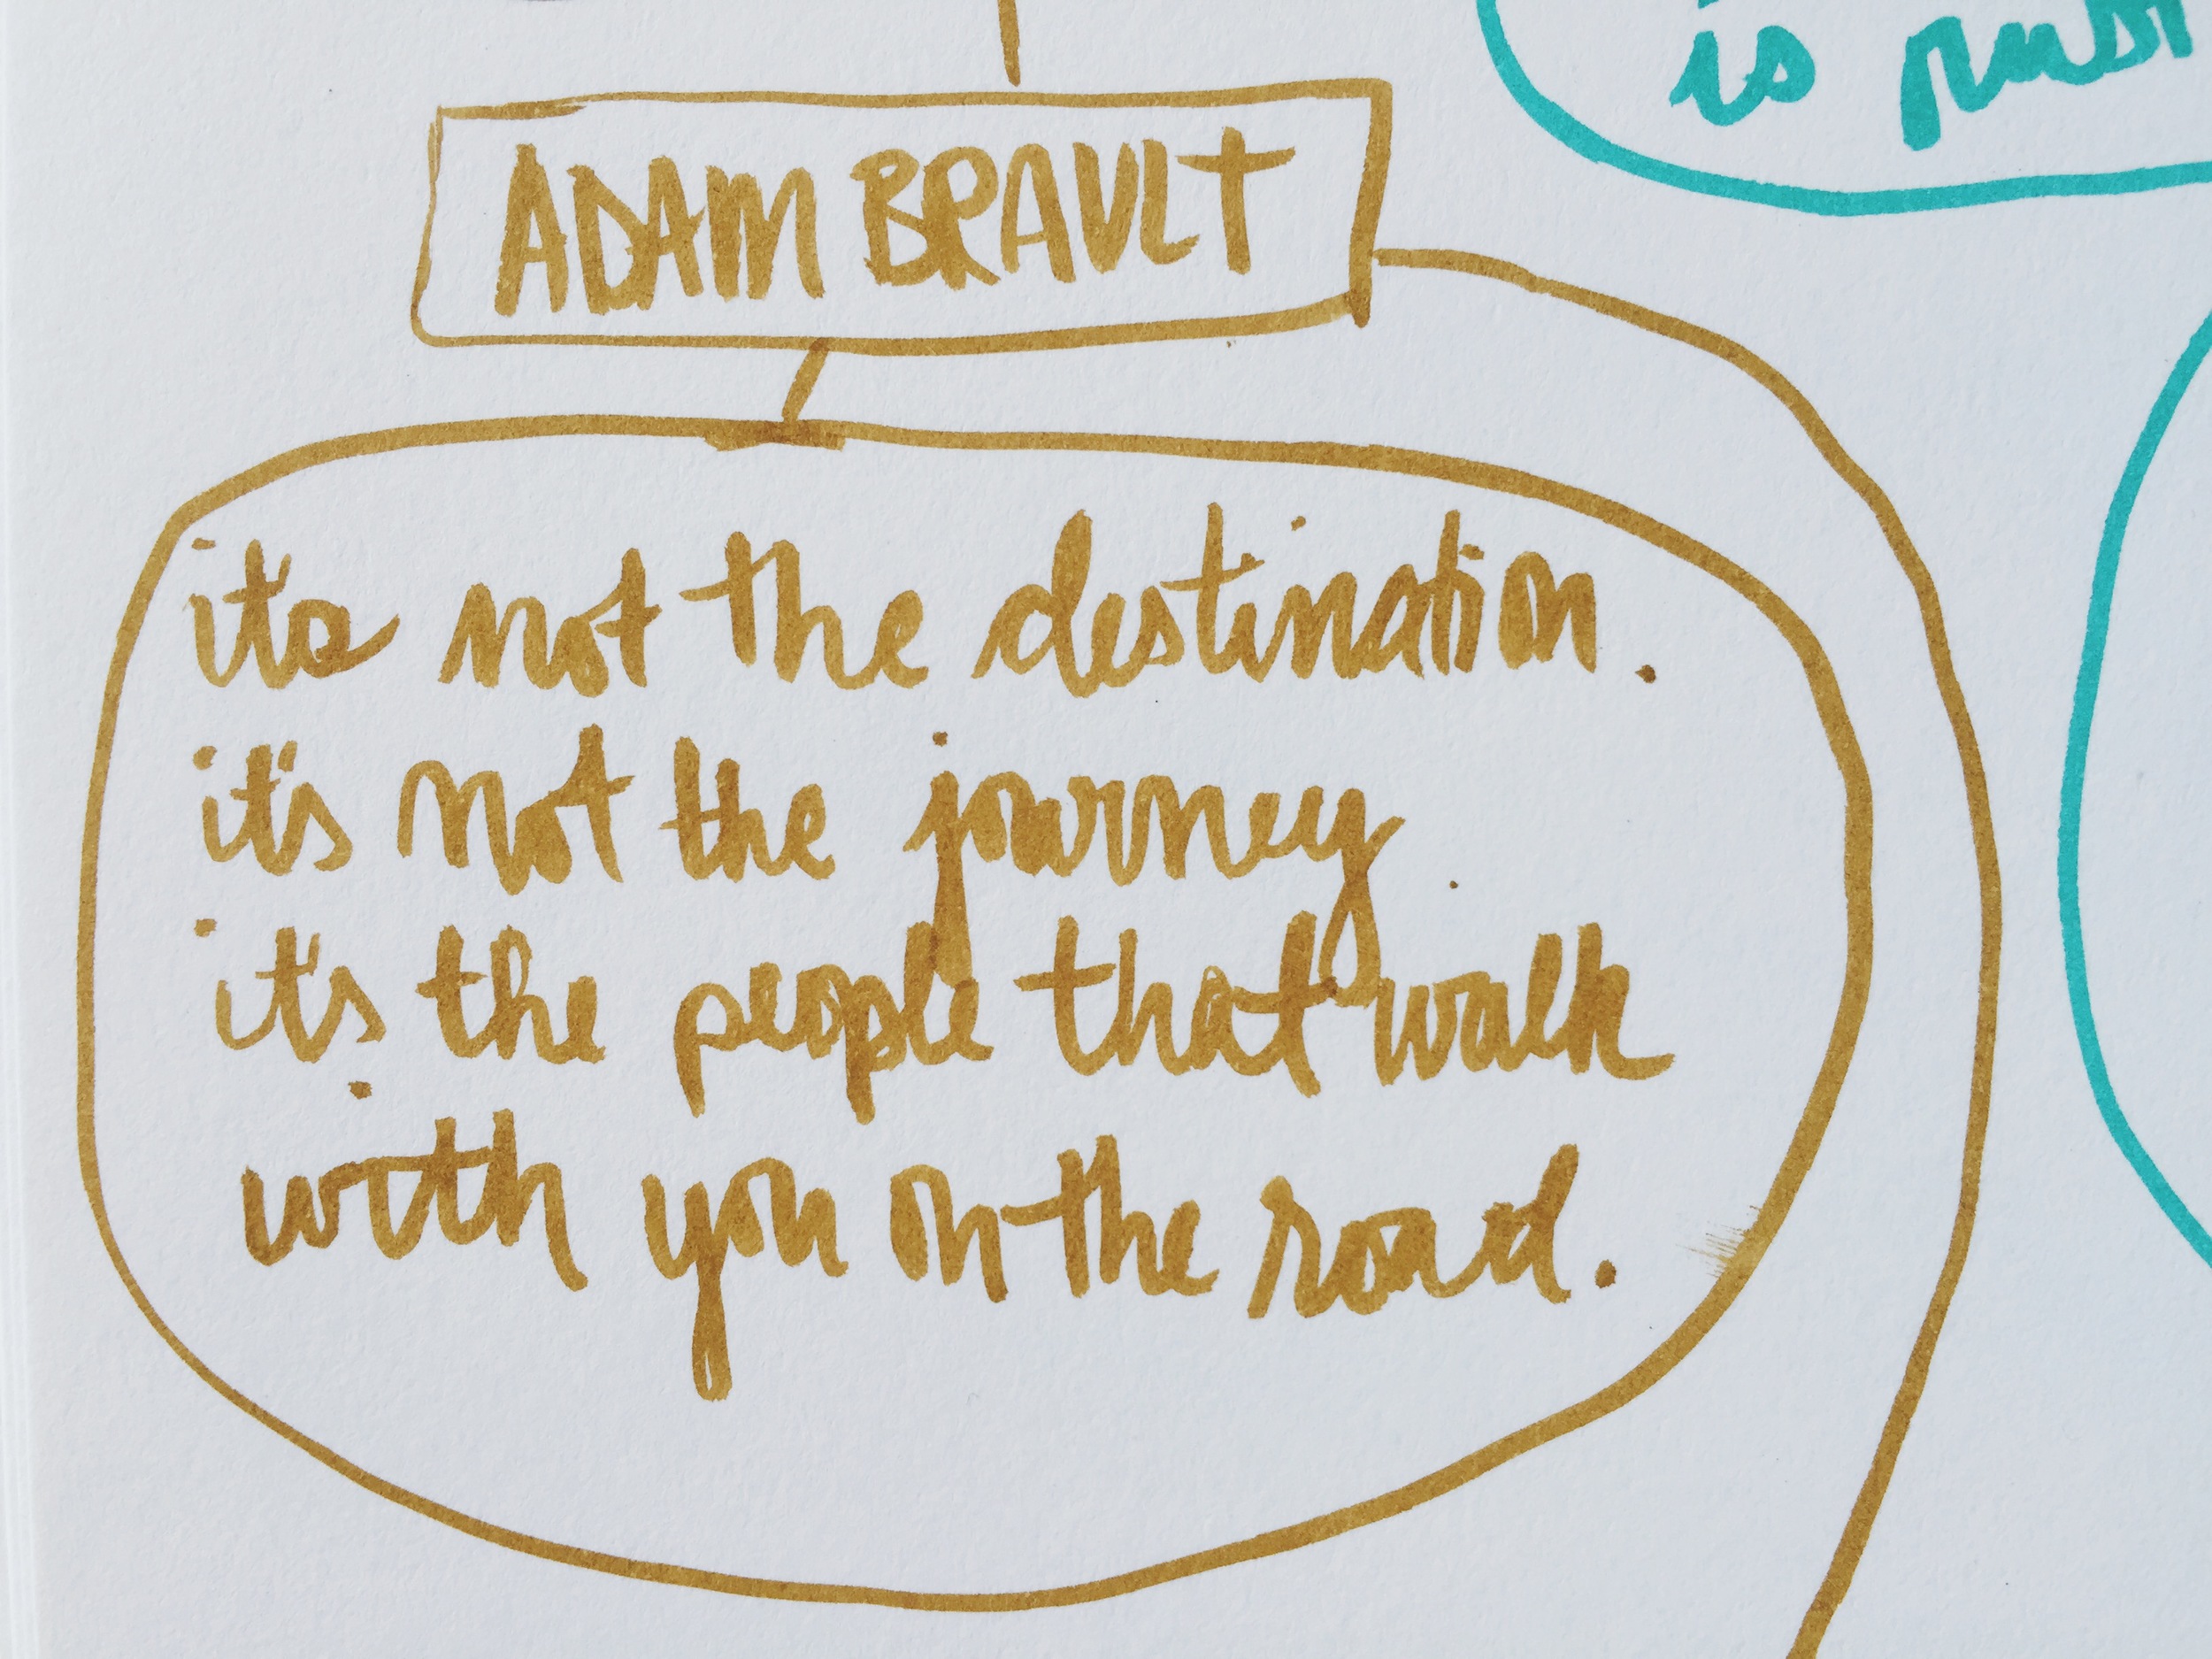 is
ADAM BRAULT
it's not the destination.
it's not the journey.
it's the people that walk
with you on the road.